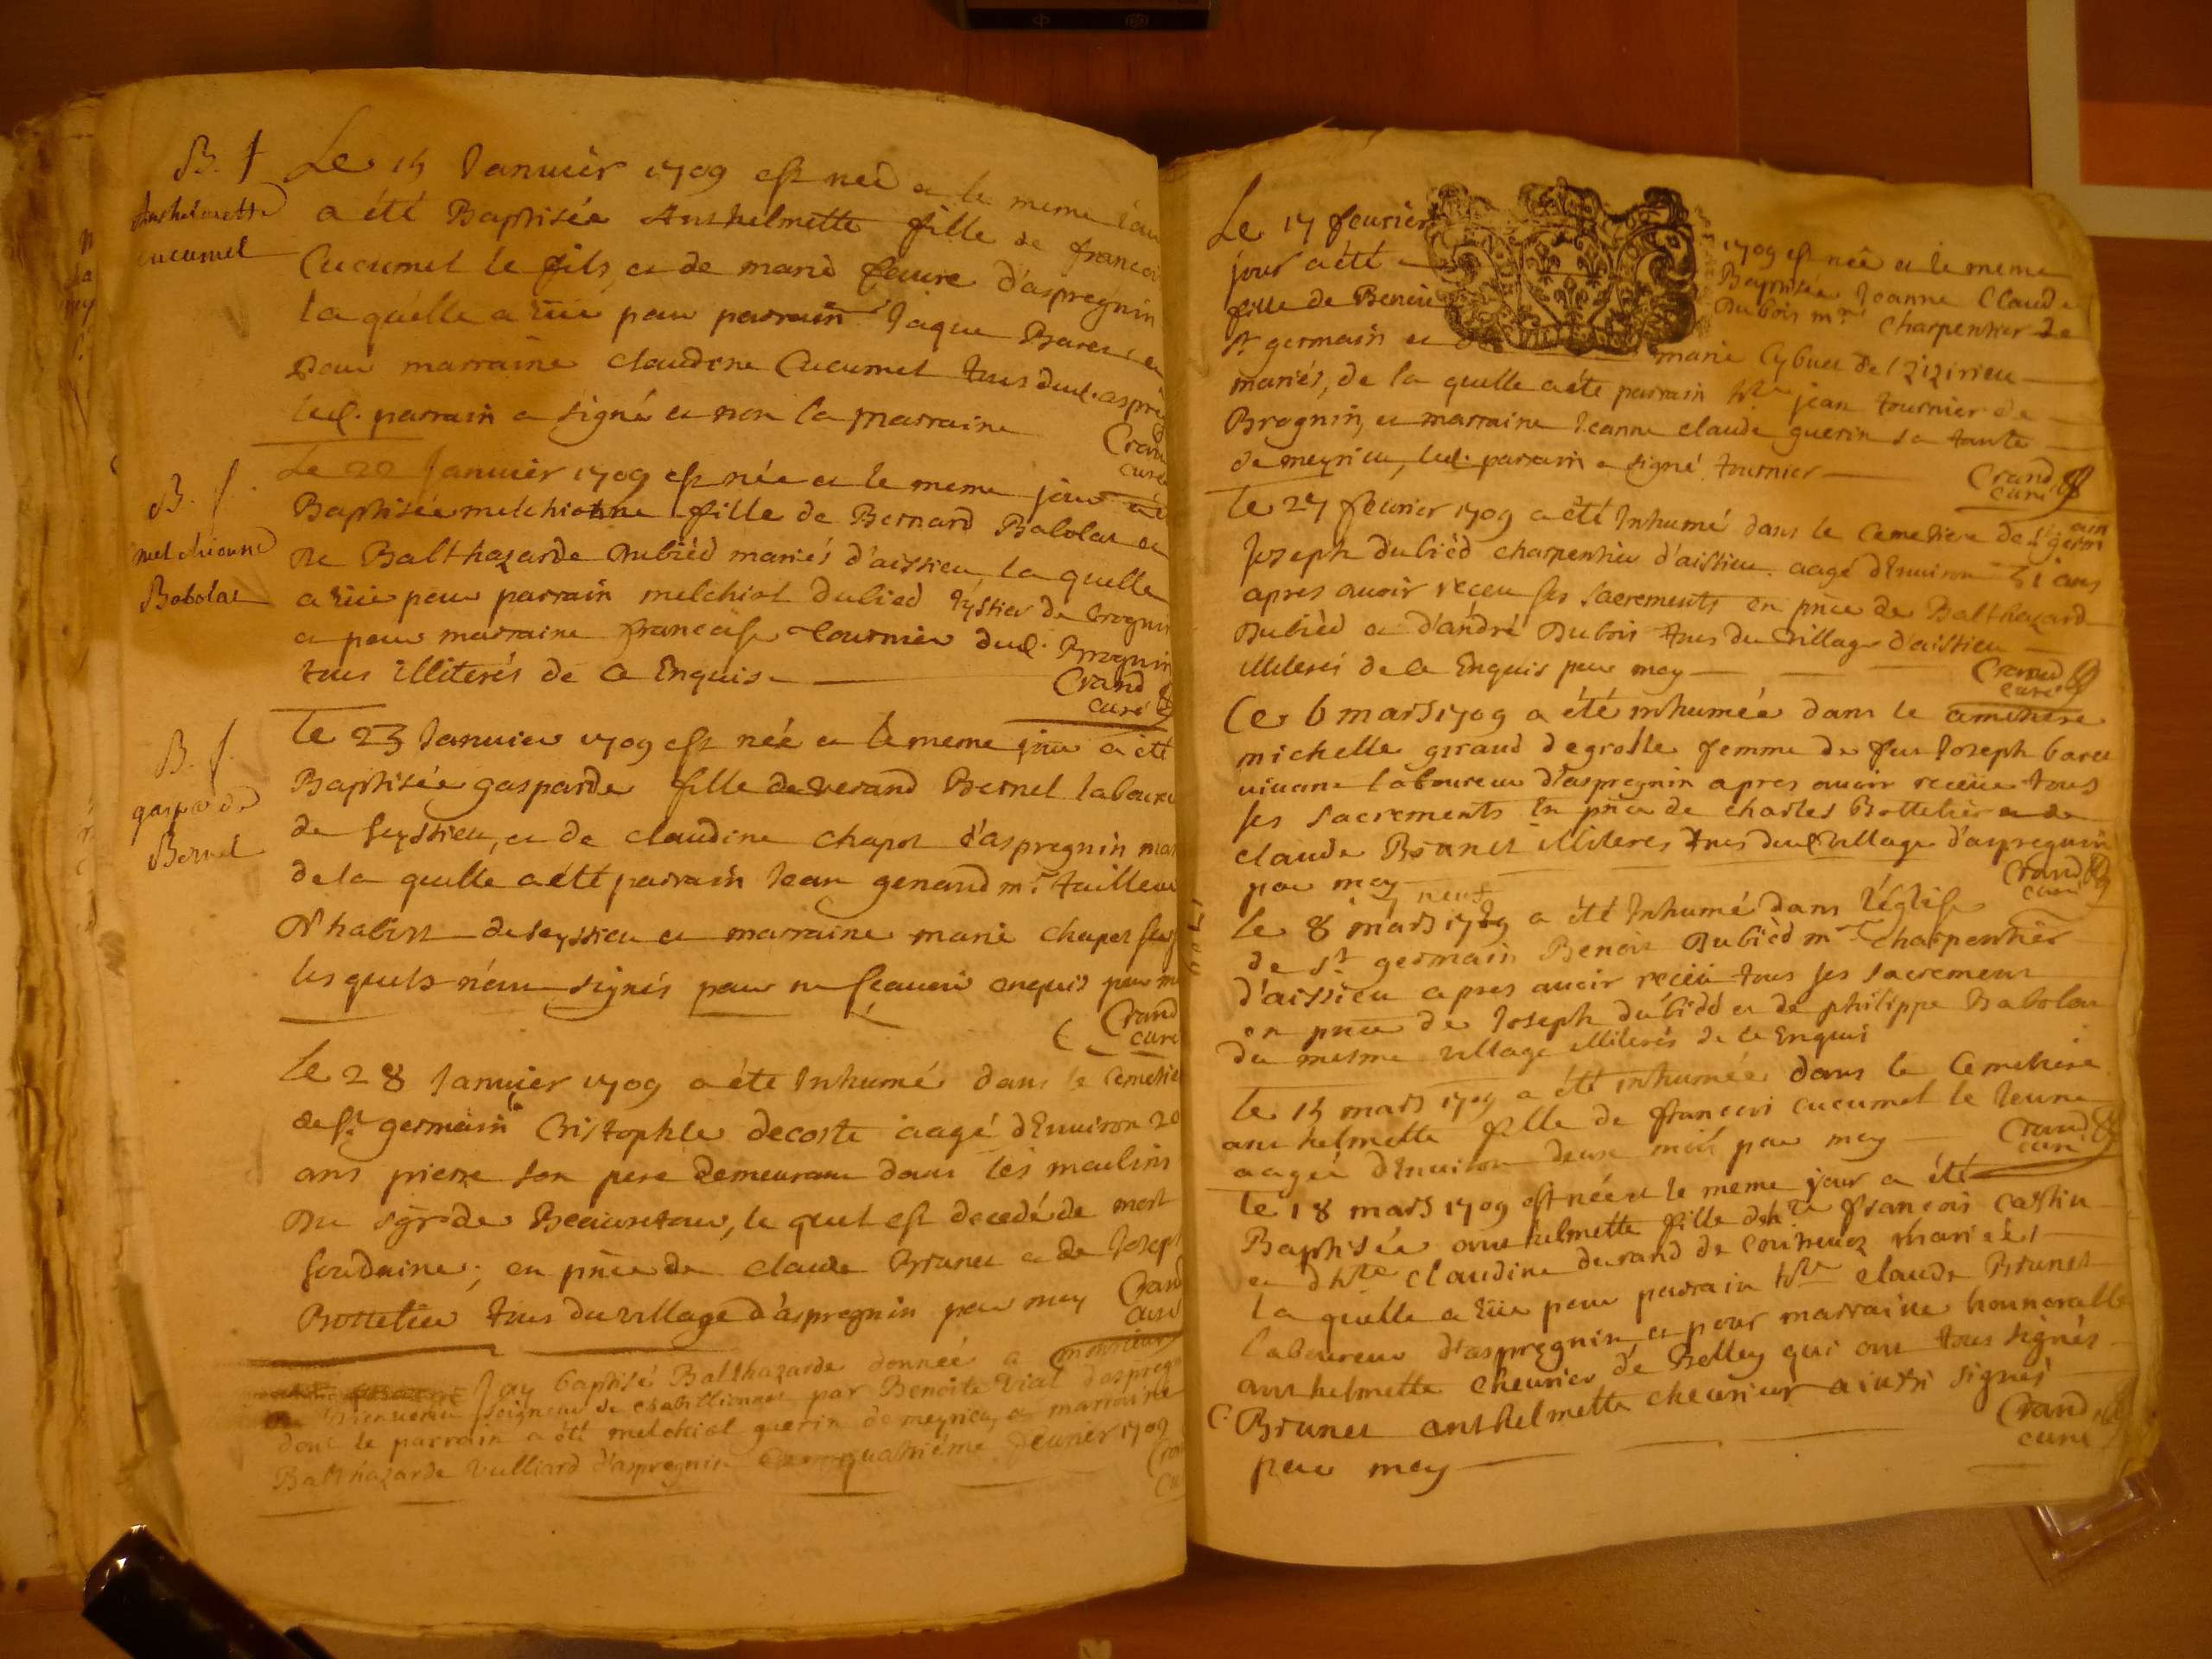 B. f
Anthelmette
Cucumel
Le 15 Januier 1709 est neé et le meme jour
a été Baptisée Anthelmette fille de francoi
Cucumel le fils, et de marie feure d'aspregnin
la quelle a eüe pour parrain Jaque Baret et
pour marraine claudine Cucumel tous dud. aspre
led. parrain a signé et non la marraine
Crand
curé
B. f.
melchionne
Bobolat
Le 20 Januier 1709 est née et le meme jour a é
Baptisée melchionne fille de Bernard Babolat et
De Balthazarde Dubiéd mariés d'aissieu, la quelle
a eüe pour parrain melchiol dubied tyssier de brognin
et pour marraine francoise Tournier dud. Brognin
tous illiterés de ce Enquis
Crand
curé
B. f.
gasparde
Bernel
Le 23 Januier 1709 est née et le meme jour a été
Baptisée gasparde fille de verand Bernel laboure
de seyssieu, et de claudine chapot d'aspregnin mar
de la quelle a été parrain Jean genand mr. tailleur
habitt de seyssieu et marraine marie chapot
les quels n'ont signés pour ne scauoir enquis par m
Crand
curé
Le 28 Januier 1709 a été Inhumé dans le Cemetie
de st. germain Cristophle decoste aagé d'Enuiron 20
ans pierre son pere demeurant dans les moulins
Du sgr de Beauretour, le quel est decedé de mort
soudaine; en pnce de claude Brunet et de Josept
Bottelier tous du village d'aspregnin par moy
Crand
curé
Jay baptisé Balthazarde donnée a monsieur
seigneur de par Benoite Vial d'aspregn
dont le parrain a été melchiol guerin de meyrieu, et marraine
Balthazarde Vulliard d'aspregnin quatriéme feurier 1709
Cra
cu
Le 17 feurier 1709 est neé et le meme
jour a été Baptisée Jeanne Claude
fille de Benoit Dubois mre. charpentier de
st. germain et marie Cybuet de
mariés, de la quelle a été parrain hble jean tournier de
Brognin, et marraine Jeanne claude guerin sa tante
de meyrieu, led. parrain a signé tournier
Crand
curé
Le 27 feurier 1709 a été Inhumé dans le Cemetiere de st germain
Joseph dubiéd charpentier d'aissieu aagé d'Enuiron 51 ans
apres auoir receu ses sacrements en pnce de Balthazard
Dubiéd et d'andré Dubois tous du village d'aissieu
illiterés de ce Enquis par moy
Crand
curé
Ce 6 mars 1709 a été inhumée dans le cimetiere
michelle giraud degrolle femme de feu Joseph baret
viuant laboureur d'aspregnin apres auoir receüe tous
ses sacrements en pnce de charles Bottelier et de
claude Brunet illiteres tous dud village d'aspregnin
par moy
Crand
curé
neuf
Le 8 mars 1709 a été Inhumé dans l'église
de st germain Benoit Dubiéd mre charpentier
d'aissieu apres auoir receü tous ses sacrement
en pnce de Joseph dubiéd et de philippe Babolat
du mesme village illiterés de ce Enquis
1709
Le 15 mars 1709 a été inhumée dans le Cemetiere
anthelmette fille de francois cucumel le Jeune
aagée d'Enuiron deux mois par moy
Crand
curé
Le 18 mars 1709 est née et le meme jour a été
Baptisée anthelmette fille d'hble francois Castin
et d'hble claudine durand de mariés
la quelle a eüe pour parrain hble claude Brunet
laboureur d'aspregnin, et pour marraine honnorable
anthelmette cheurier de Belley qui ont tous signés
C. Brunet anthelmette cheurier ainsi signés
par moy
Crand
curé